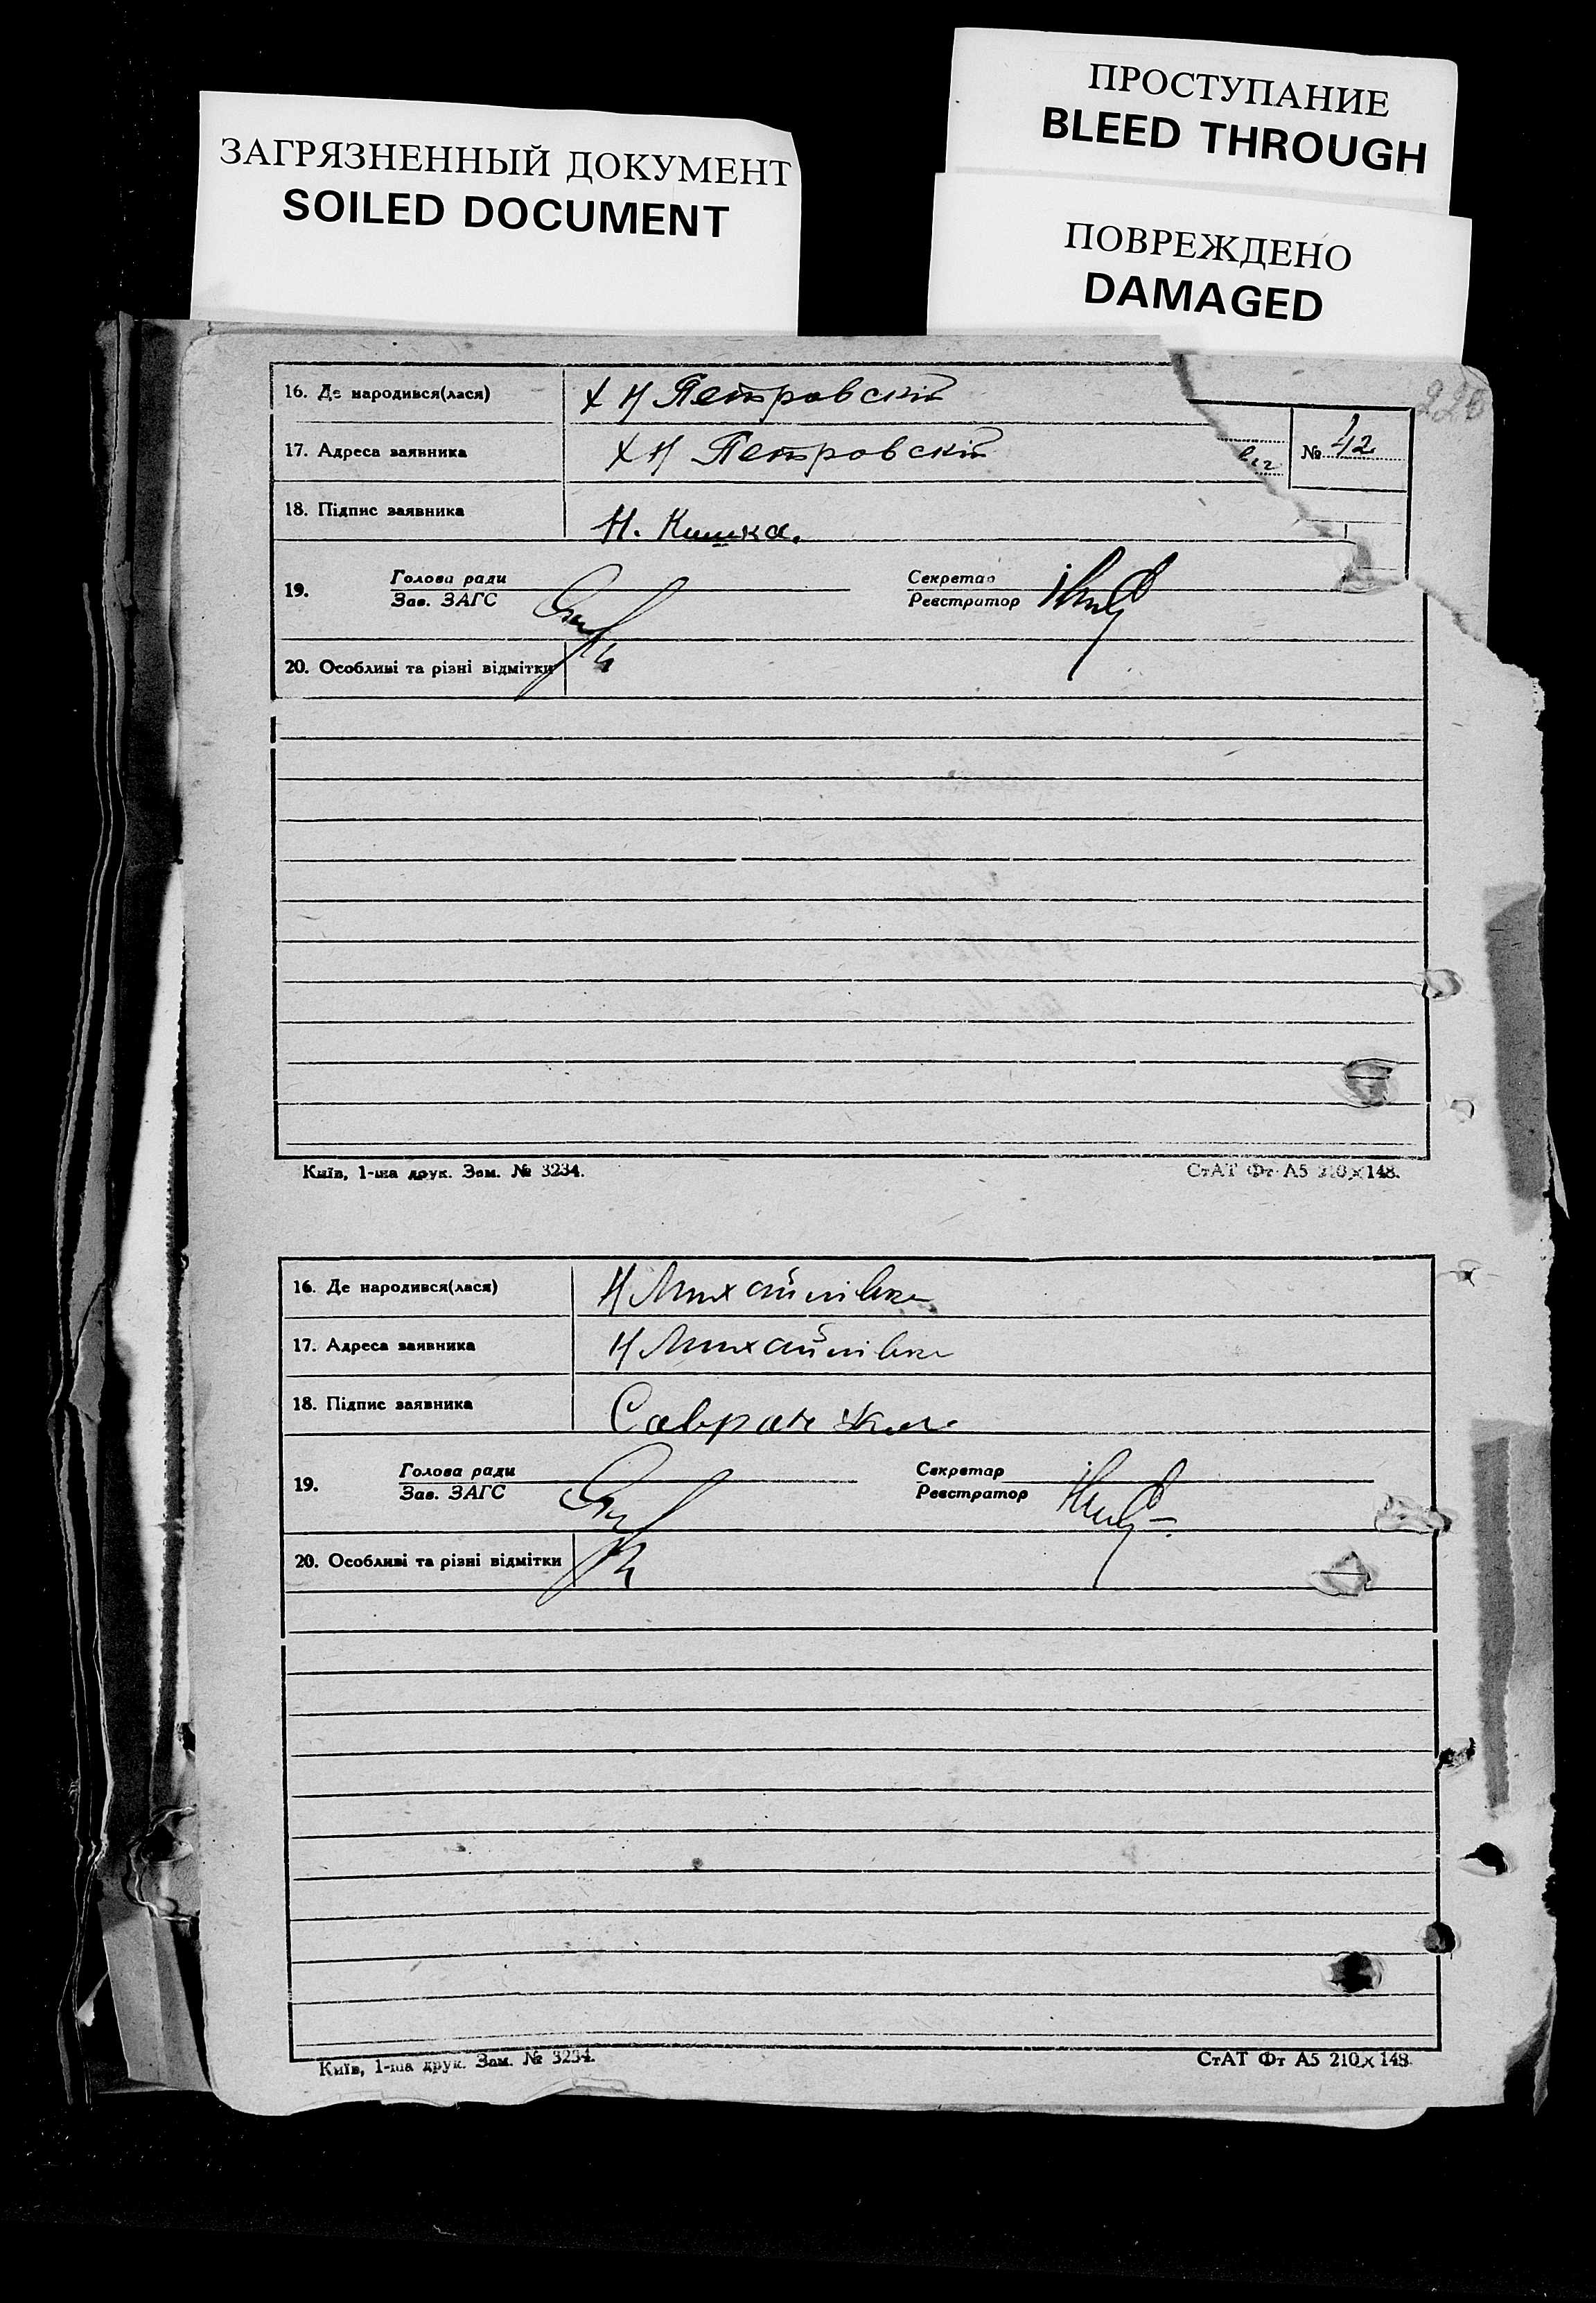 ПРОСТУПАНИЕ
BLEED THROUGH
ЗАГРЯЗНЕННЫЙ ДОКУМЕНТ
SOILED DOCUMENT
ПОВРЕЖДЕНО
DAMAGED
220
16. Де народився(лася) Х Н Петровскій
№ 42
17. Адреса заявника Х Н Петровскій
18. Підпис заявника Н. Кишка.
19. Голова ради
Зав. ЗАГС
Секретар
Реєстратор
20. Особливі та різні відмітки
Київ, 1-ша друк. Зам. № 3234.
СтАТ Фт А5 210×148.
16. Де народився(лася) Н Михайлівка
17. Адреса заявника Н Михайлівка
18. Підпис заявника
19. Голова ради
Зав. ЗАГС
Секретар
Реєстратор
20. Особливі та різні відмітки
Київ, 1-ша друк. Зам. № 3234.
СтАТ Фт А5 210×148